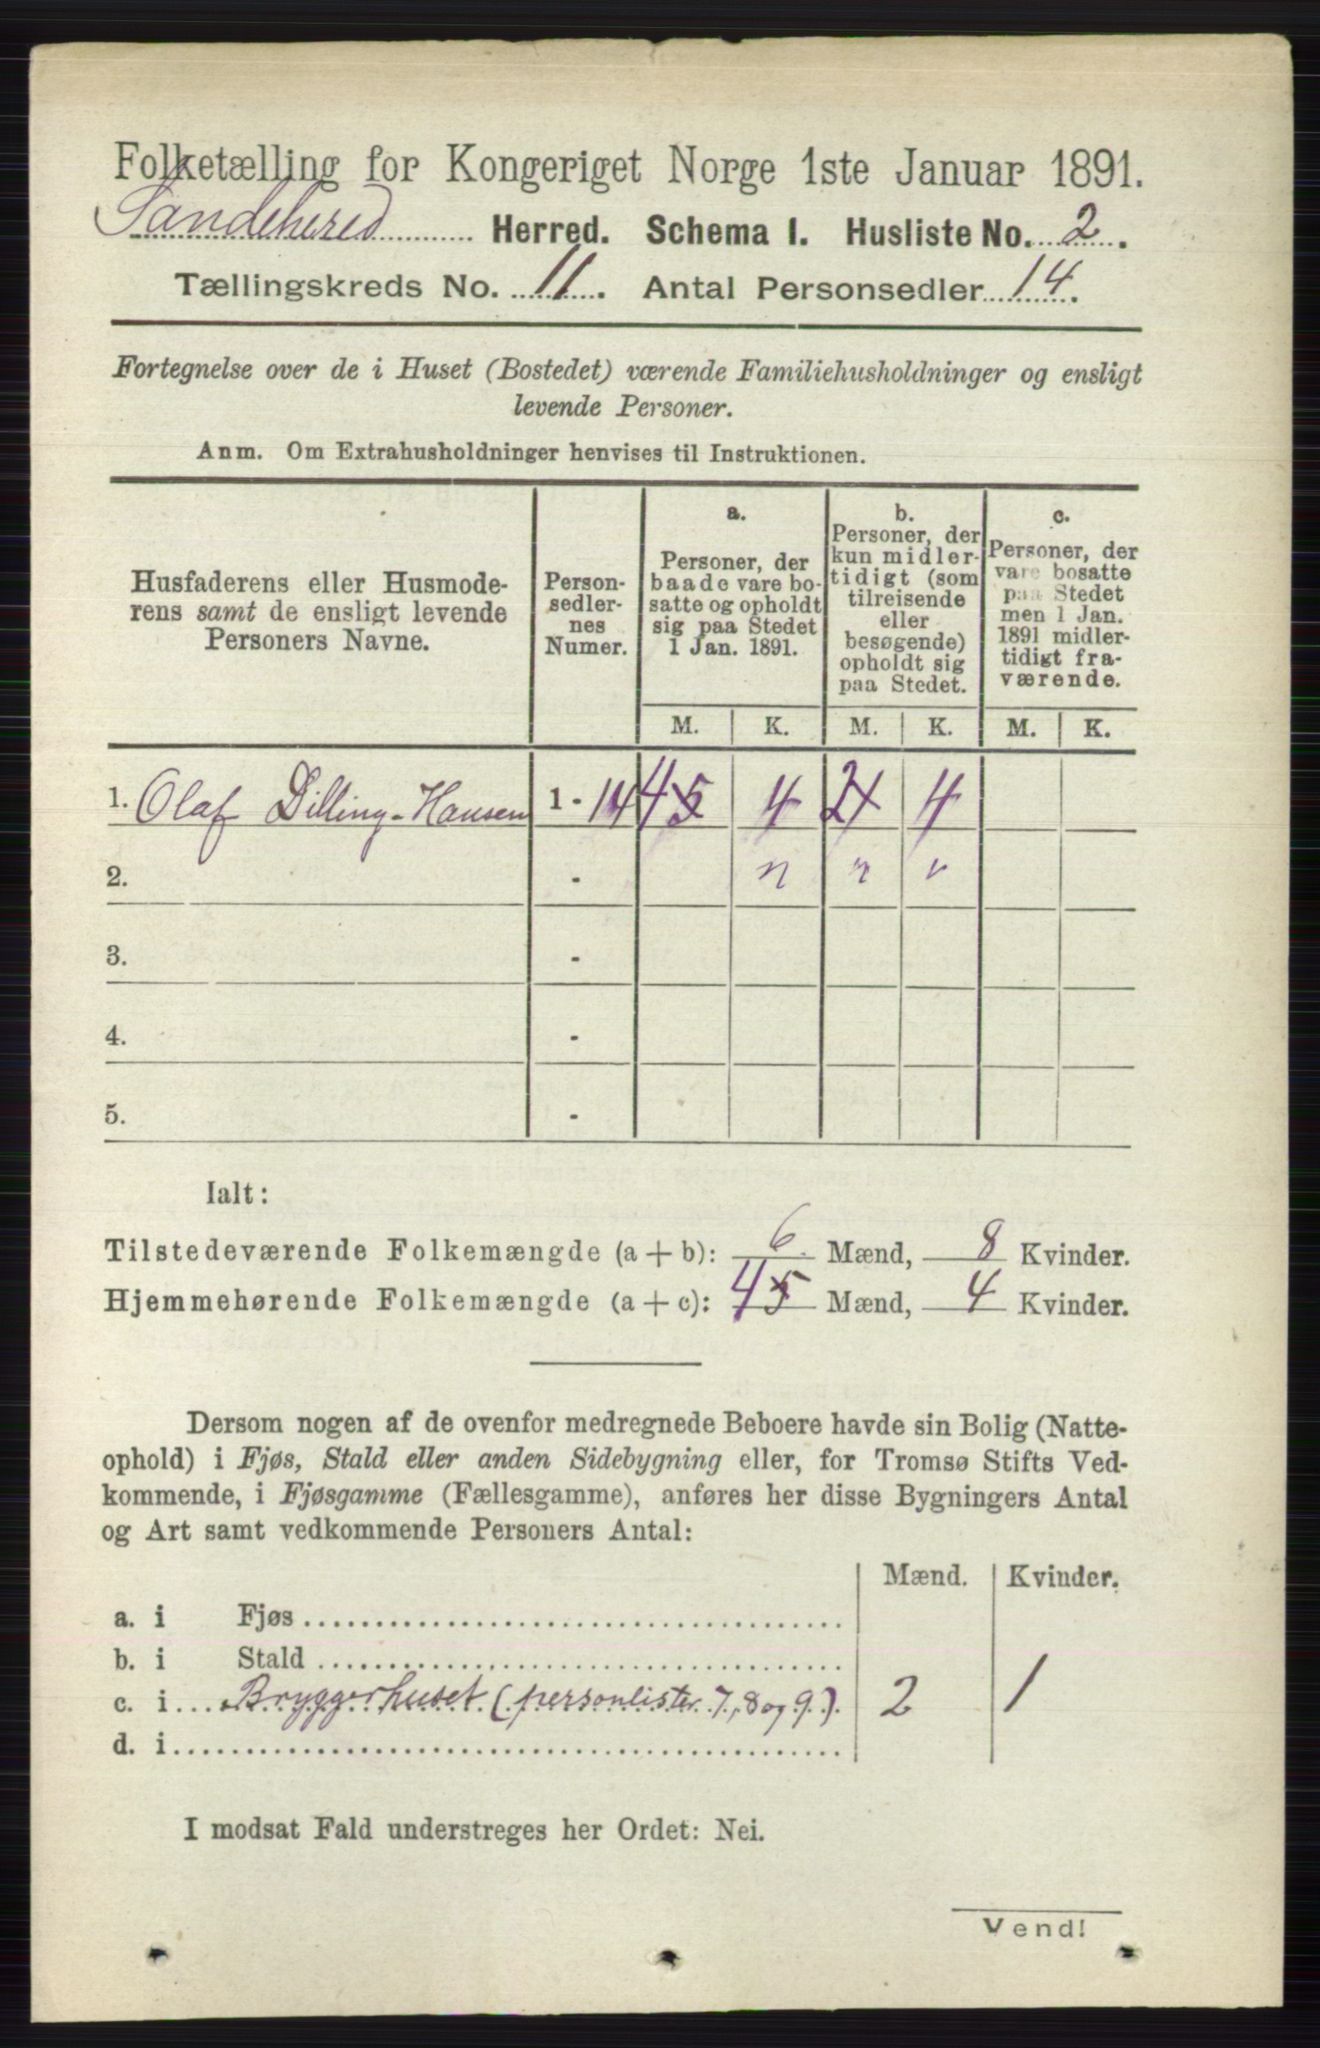 Folketælling for Kongeriget Norge 1ste Januar 1891.
Sandeherred Herred. Schema I. Husliste No. 2.
Tællingskreds No. 11. Antal Personsedler 14.
Fortegnelse over de i Huset (Bostedet) værende Familiehusholdninger og ensligt
levende Personer.
Anm. Om Extrahusholdninger henvises til Instruktionen.
Husfaderens eller Husmode-
rens samt de ensligt levende
Personers Navne.
Person-
sedler-
nes
Numer.
a.
Personer, der
baade vare bo-
satte og opholdt
sig paa Stedet
1 Jan. 1891.
b.
Personer, der
kun midler-
tidigt (som
tilreisende
eller
besøgende)
opholdt sig
paa Stedet.
c.
Personer, der
vare bosatte
paa Stedet
men 1 Jan.
1891 midler-
tidigt fra-
værende.
M. K. M. K. M. K.
1. Olaf Dilling-Hansen 1 - 14 4 5 4 2 4
2. - " " "
3. -
4. -
5. -
Ialt:
Tilstedeværende Folkemængde (a + b): 6 Mænd, 8 Kvinder.
Hjemmehørende Folkemængde (a + c): 4 5 Mænd, 4 Kvinder.
Dersom nogen af de ovenfor medregnede Beboere havde sin Bolig (Natte-
ophold) i Fjøs, Stald eller anden Sidebygning eller, for Tromsø Stifts Ved-
kommende, i Fjøsgamme (Fællesgamme), anføres her disse Bygningers Antal
og Art samt vedkommende Personers Antal:
Mænd. Kvinder.
a. i Fjøs
b. i Stald
c. i Bryggerhuset (personlister 7, 8 og 9). 2 1
d. i
I modsat Fald understreges her Ordet: Nei.
Vend!